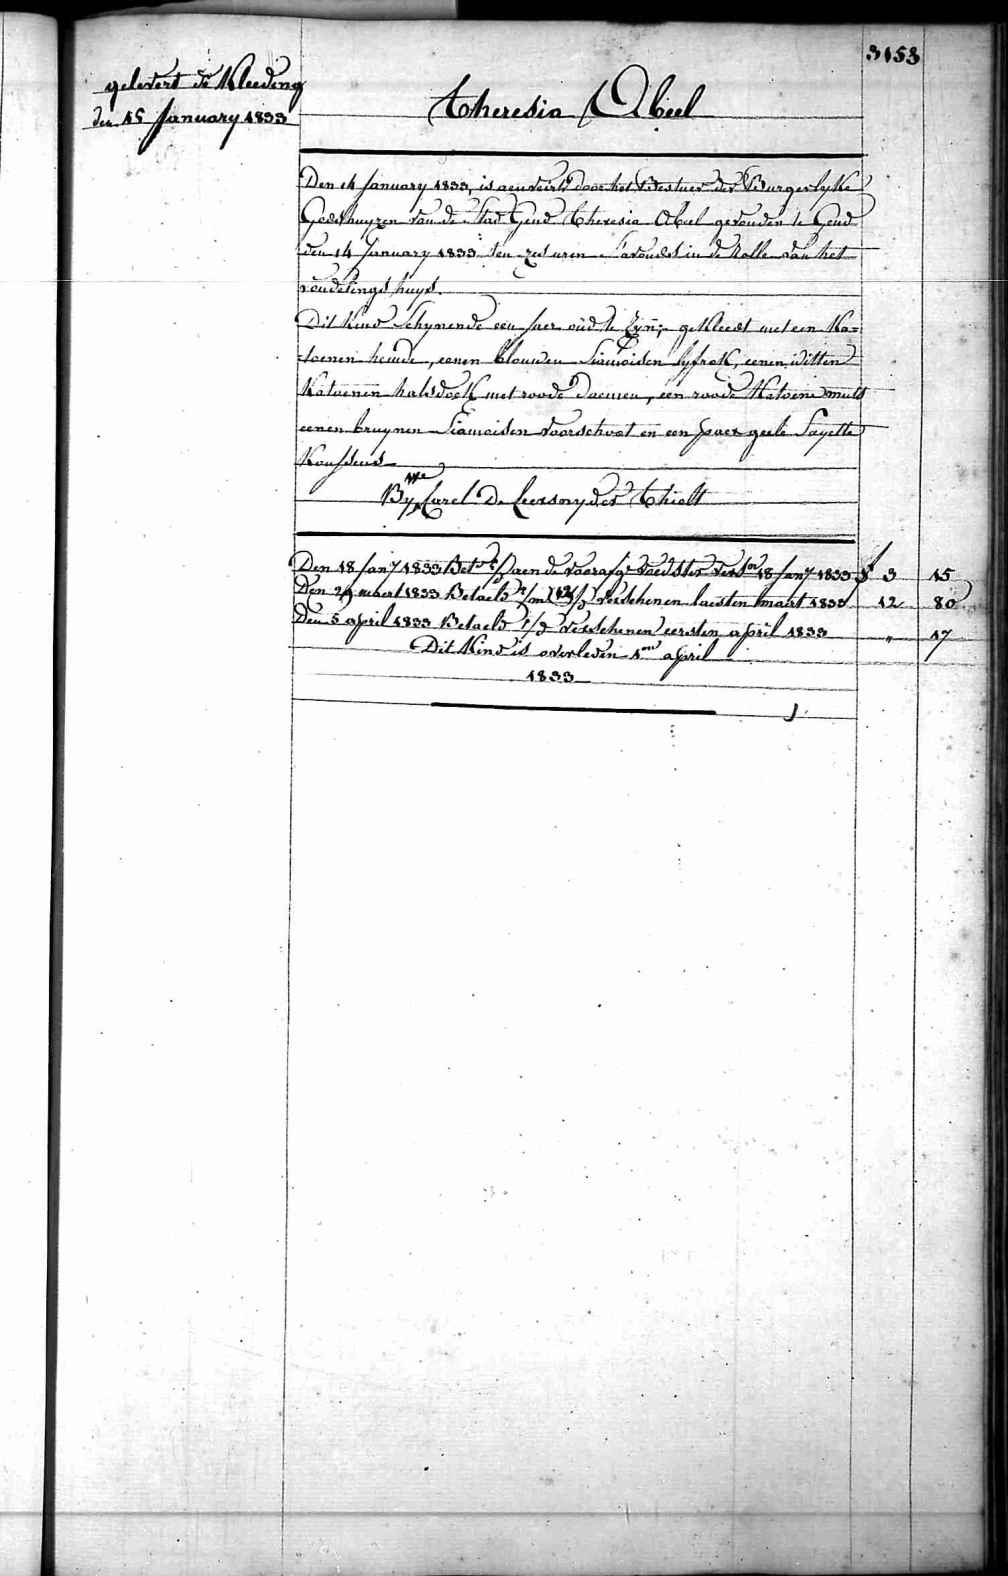 3153
gelevert de Kleeding
den 15 January 1833
Theresia Abeel
Den 14 January 1833, is aenveird door het Bestuer der Burgerlyke
Godshuyzen van de Stad Gend Theresia Abeel gevonden te Gend
den 14 January 1833 ten zes uren s'avonds in de Rolle van het
vondelings huys.
Dit Kind Schynende een jaer oud te Zyn; gekleedt met een Ka=
=toenen hemde, eenen blauwen Siamoisen lyfrok, eenen witten
Katoenen halsdoek met roode , een roode Katoene muts
eenen bruynen Siamoisen voorschoot en een paer geele Sayette
Koussens
By Carel De Leersnyder Thielt
Den 18 Jany 1833 aen de voedster 18 Jany 1833 f 3 15
Den 29 maert 1833 Betaeld verschenen laesten maart 1833 12 80
Den 5 april 1833 Betaeld verschenen eersten april 1833 " 17
Dit Kind is overleden 1en april
1833